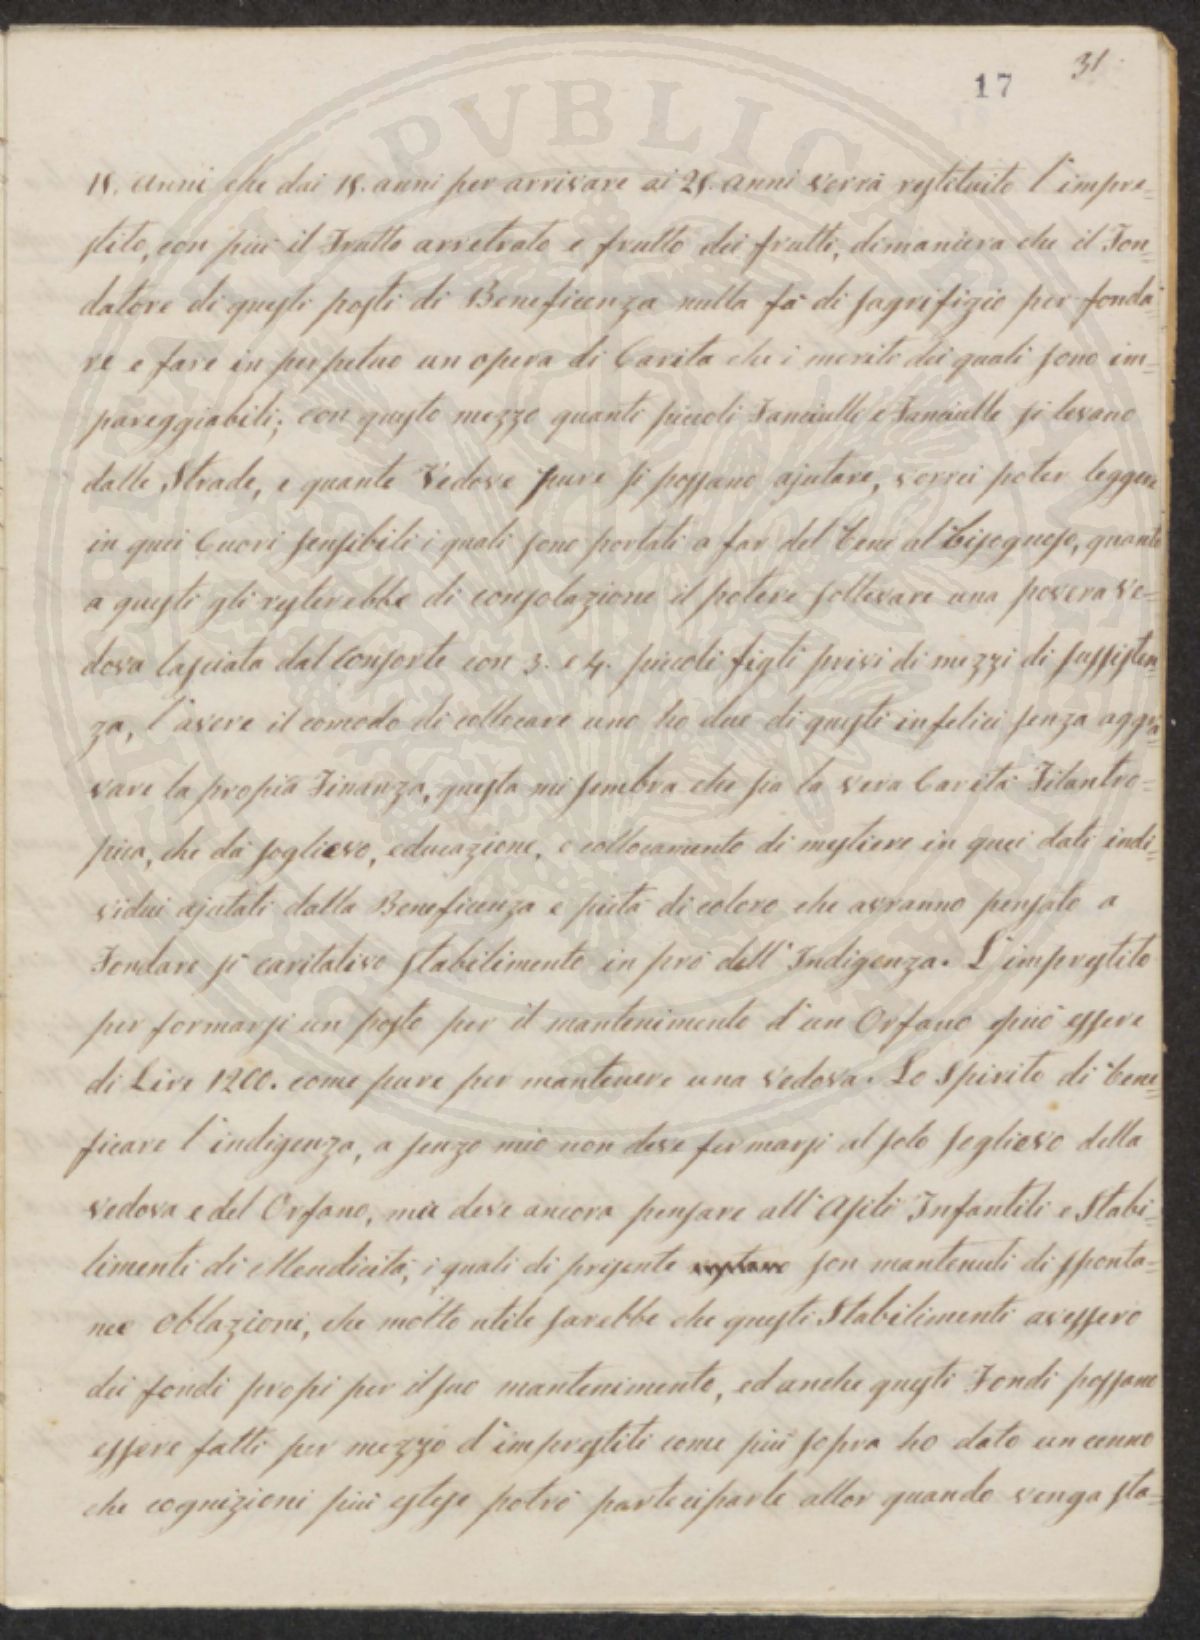 31.
17
18. anni che dai 18. anni per arrivare ai 28. anni verrà restituito l'impre=
stito, con più il Frutto arretrato e frutto dei frutti, dimaniera che il Fon=
datore di questi posti di Beneficenza nulla fà di sagrifizio per fonda=
re e fare in perpetuo un opera di Carita che i merito dei quali sono im=
pareggiabili; con questo mezzo quanti piccoli Fanciulli e Fanciulle si levano
dalle Strade, e quante Vedove pure si possano ajutare, vorrei poter leggere
in quei Cuori sensibili i quali sono portati a far del bene al bisognoso, quanto
a questi gli resterebbe di consolazione il potere sollevare una povera ve=
dova lasciata dal Consorte con 3. e 4. piccoli figli privi di mezzi di sussisten=
za, l'avere il comodo di collocare uno ho due di questi infelici senza aggra=
vare la propia Finanza, questa mi sembra che sia la vera Carità Filantro=
pica, che dà soglievo, educazione, e collocamento di mestiere in quei dati indi=
vidui ajutati dalla Beneficenza e pietà di coloro che avranno pensato a
Fondare sì caritativo stabilimento in prò dell'Indigenza. L'imprestito
per formarsi un posto per il mantenimento d'un Orfano può essere
di Lire 1200. come pure per mantenere una vedova. Lo Spirito di bene=
ficare l'indigenza, a senzo mio non deve fermarsi al solo soglievo della
vedova e del Orfano, ma deve ancora pensare all'Asili Infantili e Stabi=
limenti di Mendicità, i quali di presente son mantenuti di sponta=
nee Oblazioni, che molto utile sarebbe che questi Stabilimenti avessero
dei fondi propi per il suo mantenimento, ed anche questi Fondi possano
essere fatti per mezzo d'imprestiti come più sopra ho dato un cenno
che cognizioni più estese potrò parteciparle allor quando venga sta=